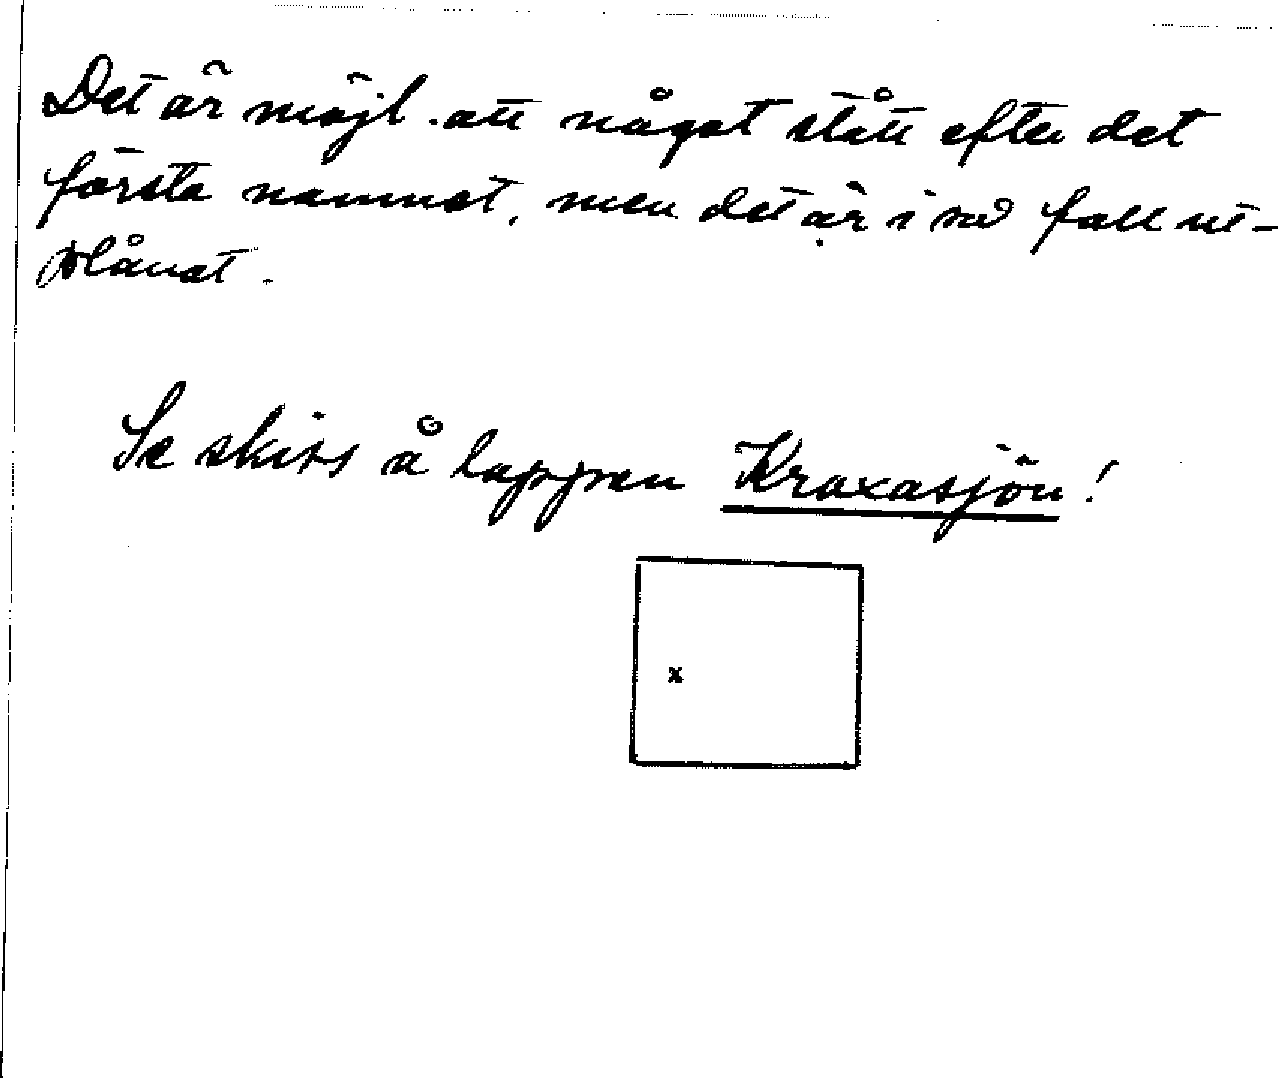 Det är möjl. att något stått efter det
första namnet, men det är i så fall ut-
plånat.
Se skiss å lappen Kraxasjön!
x